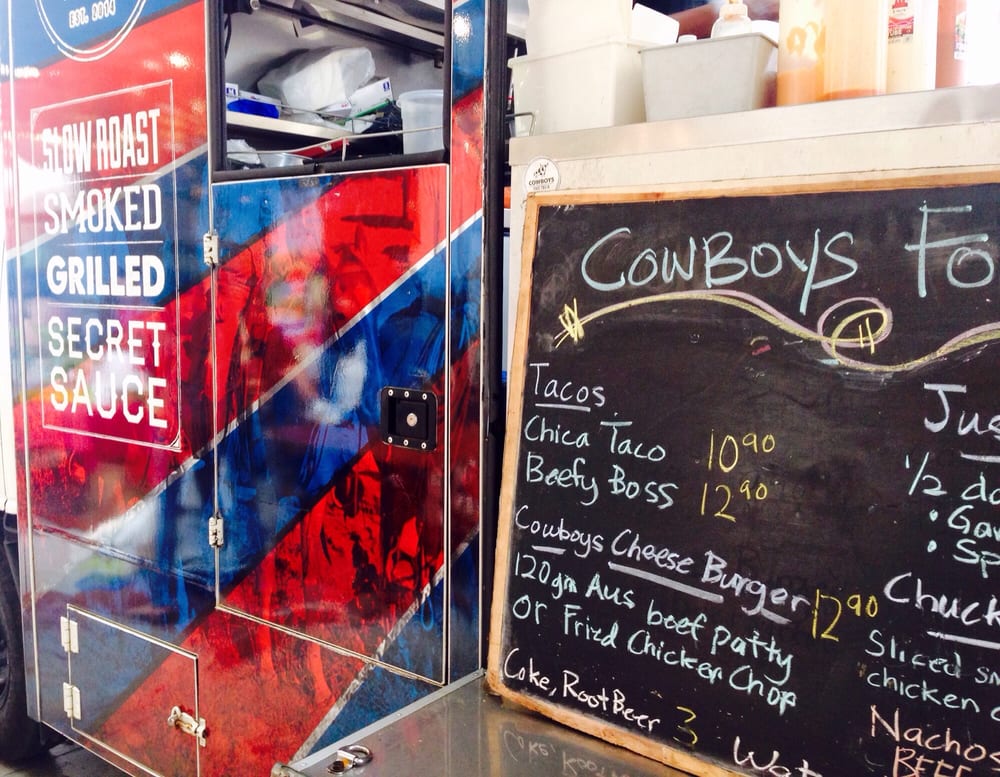 EST. 2014
SLOW ROAST
SMOKED
GRILLED
SECRET
SAUCE
COWBOYS
COWBOYS Fo
Tacos
Chica Taco 10.90
Beefy Boss 12.90
Cowboys Cheese Burger 12.90
120gm Aus beef patty
or Fried Chicken Chop
Coke, Root Beer 3
Wat
Jus
1/2 do
• Gar
• Sp
Chuck
Sliced sm
chicken
Nachos
BEEF